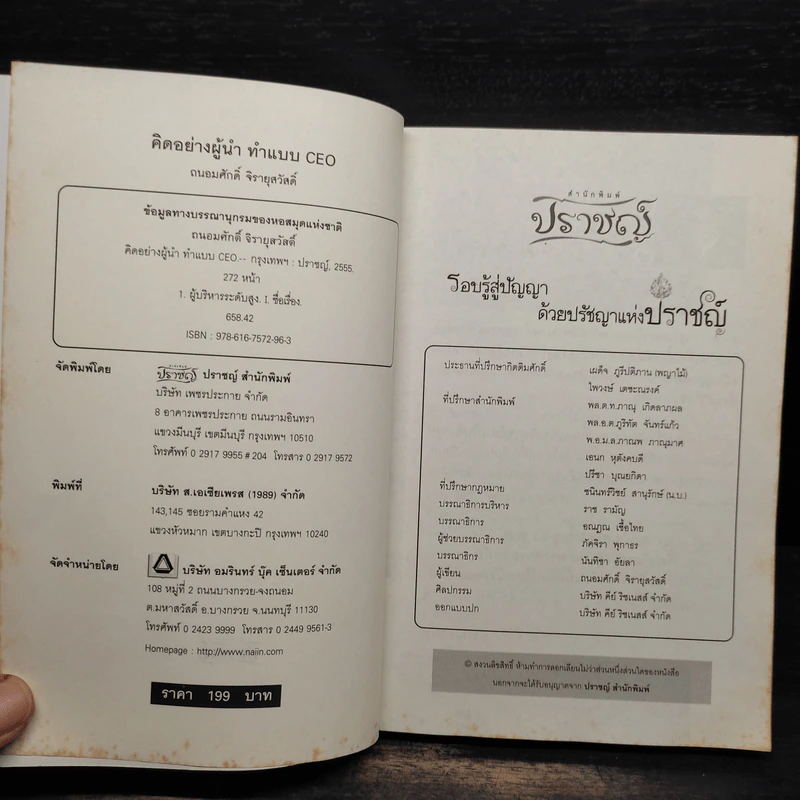 คิดอย่างผู้นำ ทำแบบ CEO
ถนอมศักดิ์ จิรายุสวัสดิ์
ข้อมูลทางบรรณานุกรมของหอสมุดแห่งชาติ
ถนอมศักดิ์ จิรายุสวัสดิ์
คิดอย่างผู้นำ ทำแบบ CEO.-- กรุงเทพฯ : ปราชญ์, 2555.
272 หน้า
1. ผู้บริหารระดับสูง. I. ชื่อเรื่อง.
658.42
ISBN : 978-616-7572-96-3
จัดพิมพ์โดย สำนักพิมพ์ ปราชญ์ ปราชญ์ สำนักพิมพ์
บริษัท เพชรประกาย จำกัด
8 อาคารเพชรประกาย ถนนรามอินทรา
แขวงมีนบุรี เขตมีนบุรี กรุงเทพฯ 10510
โทรศัพท์ 0 2917 9955 # 204 โทรสาร 0 2917 9572
พิมพ์ที่ บริษัท ส.เอเซียเพรส (1989) จำกัด
143,145 ซอยรามคำแหง 42
แขวงหัวหมาก เขตบางกะปิ กรุงเทพฯ 10240
จัดจำหน่ายโดย บริษัท อมรินทร์ บุ๊ค เซ็นเตอร์ จำกัด
108 หมู่ที่ 2 ถนนบางกรวย-จงถนอม
ต.มหาสวัสดิ์ อ.บางกรวย จ.นนทบุรี 11130
โทรศัพท์ 0 2423 9999 โทรสาร 0 2449 9561-3
Homepage : http://www.naiin.com
ราคา 199 บาท
สำนักพิมพ์
ปราชญ์
รอบรู้สู่ปัญญา
ด้วยปรัชญาแห่งปราชญ์
ประธานที่ปรึกษากิตติมศักดิ์ เผด็จ ภูรีปติภาน (พญาไม้)
ไพวงษ์ เตชะณรงค์
ที่ปรึกษาสำนักพิมพ์ พล.ต.ท.ภาณุ เกิดลาภผล
พล.อ.ต.ภูริทัต จันทร์แก้ว
พ.อ.ม.ล.ภาณพ ภาณุมาศ
เอนก หุตังคบดี
ปรีชา บุณยกิดา
ที่ปรึกษากฎหมาย ชนินทร์วิชย์ สานุรักษ์ (น.บ.)
บรรณาธิการบริหาร ราช รามัญ
บรรณาธิการ อณฎณ เชื้อไทย
ผู้ช่วยบรรณาธิการ ภัคจิรา พุกาธร
บรรณาธิกร นันทิชา อัยลา
ผู้เขียน ถนอมศักดิ์ จิรายุสวัสดิ์
ศิลปกรรม บริษัท คีย์ ริชเนสส์ จำกัด
ออกแบบปก บริษัท คีย์ ริชเนสส์ จำกัด
© สงวนลิขสิทธิ์ ห้ามทำการลอกเลียนไม่ว่าส่วนหนึ่งส่วนใดของหนังสือ
นอกจากจะได้รับอนุญาตจาก ปราชญ์ สำนักพิมพ์